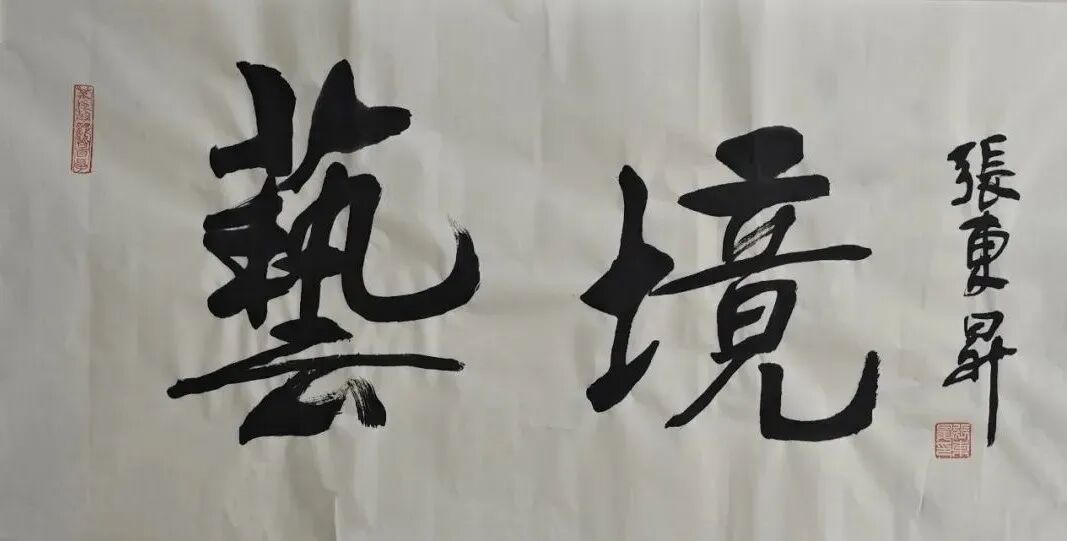 藝境
張東昇